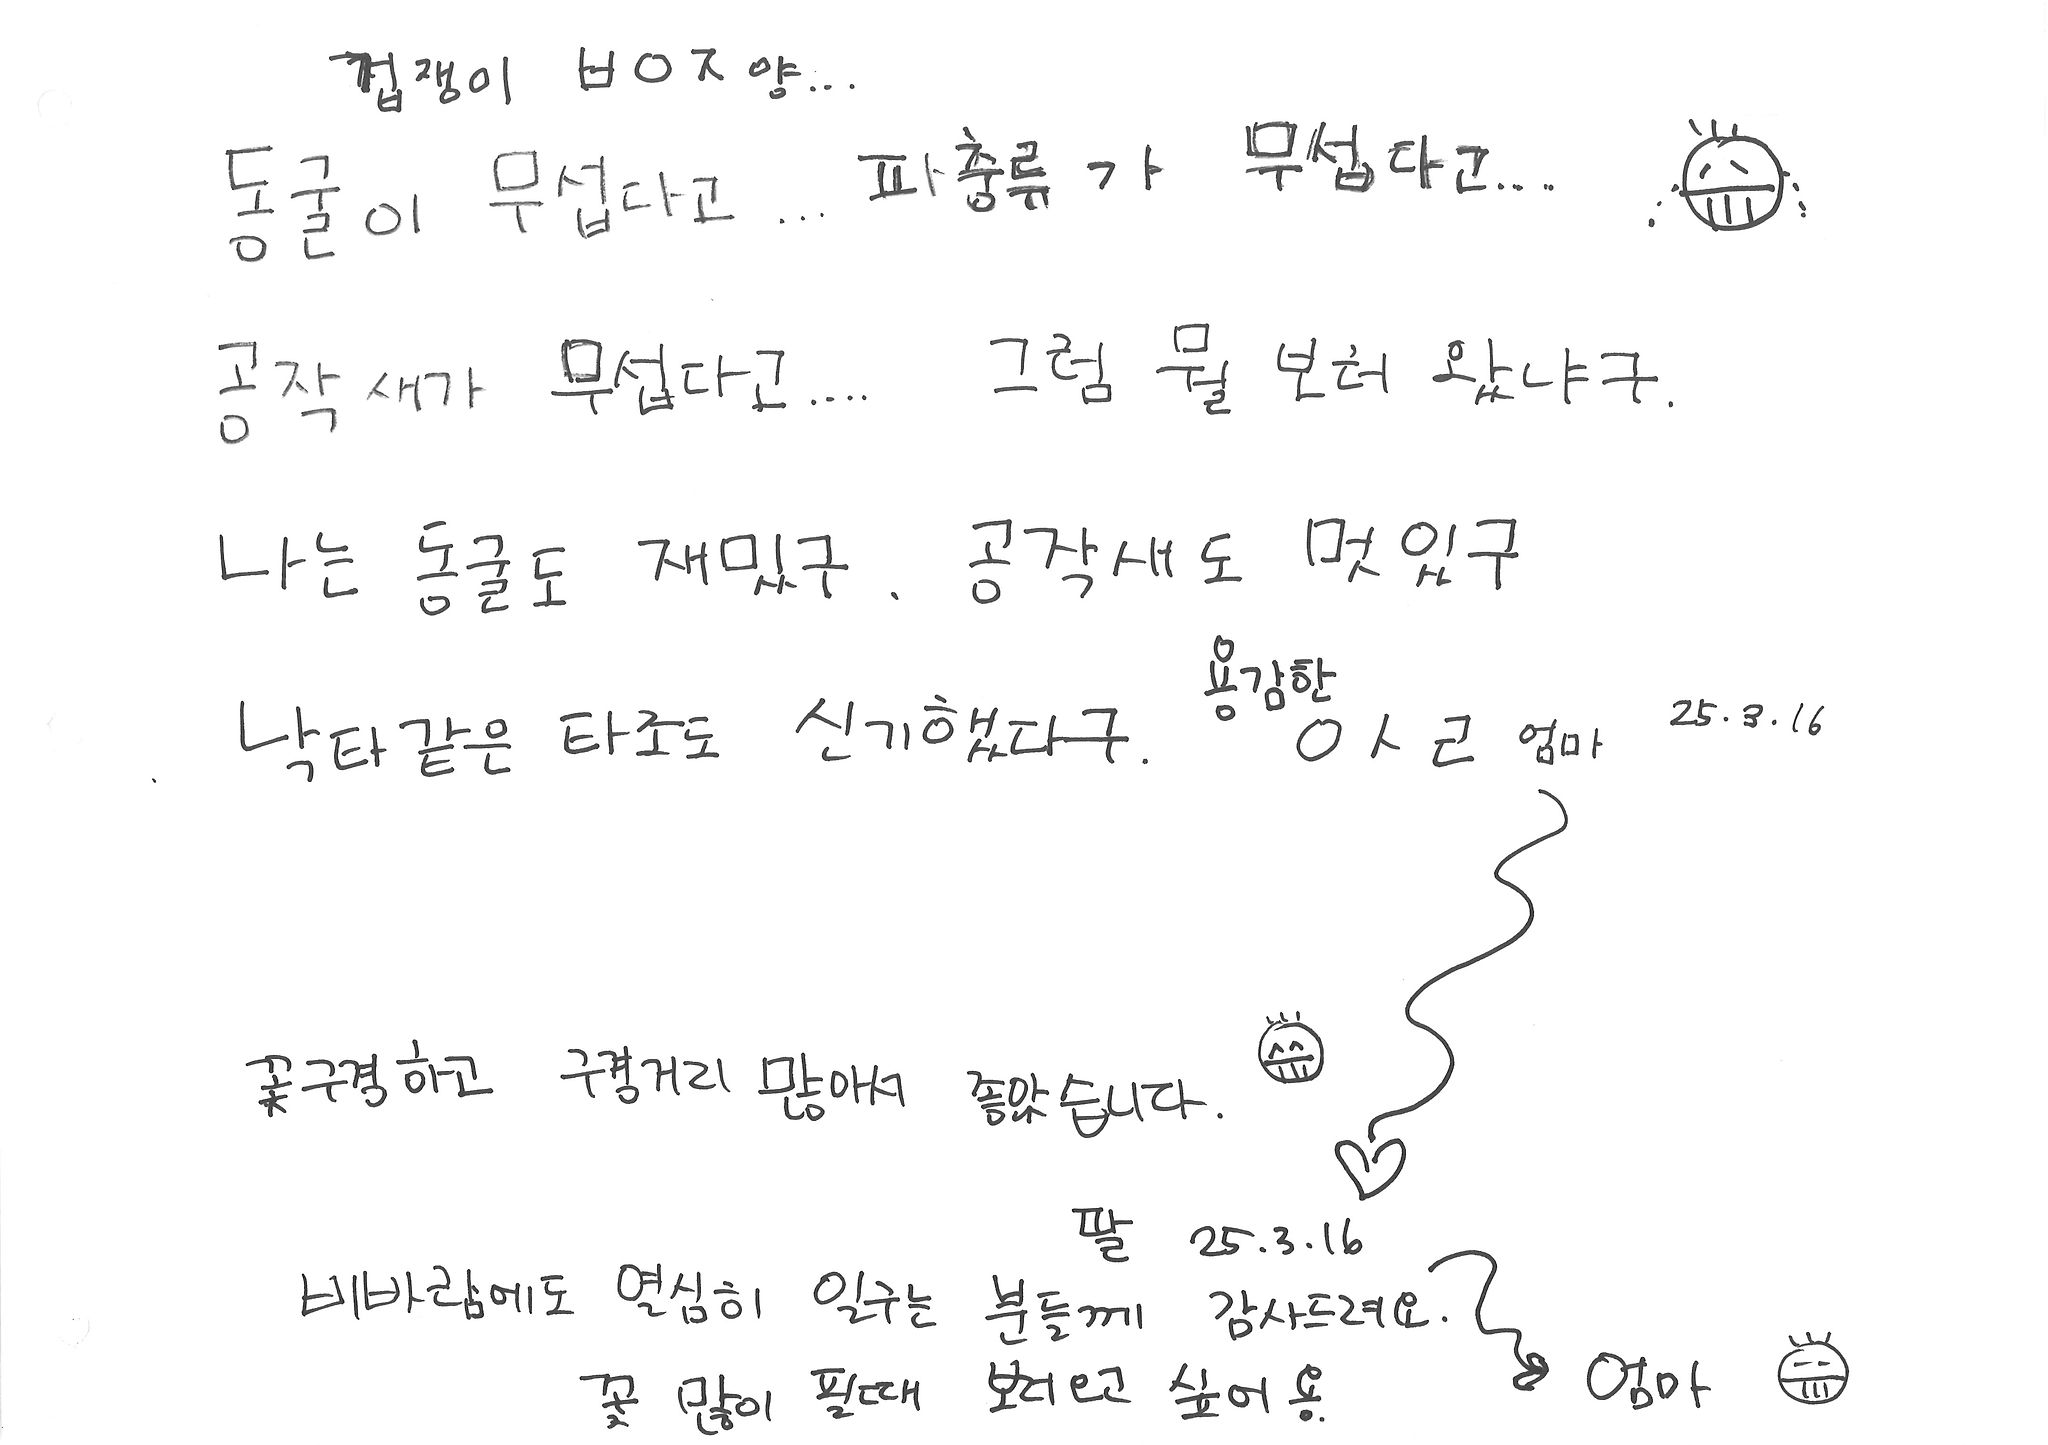 겁쟁이 ㅂㅇㅈ양...
동굴이 무섭다고... 파충류가 무섭다고....
공작새가 무섭다고.... 그럼 뭘 보러 왔냐구.
나는 동굴도 재밌구. 공작새도 멋있구
낙타같은 타조도 신기했다구. 용감한 ㅇㅅㄹ 엄마 25.3.16
꽃구경하고 구경거리 많아서 좋았습니다.
팔 25.3.16
비바람에도 열심히 일구는 분들께 감사드려요.
꽃 많이 필때 보러오고 싶어용. 엄마